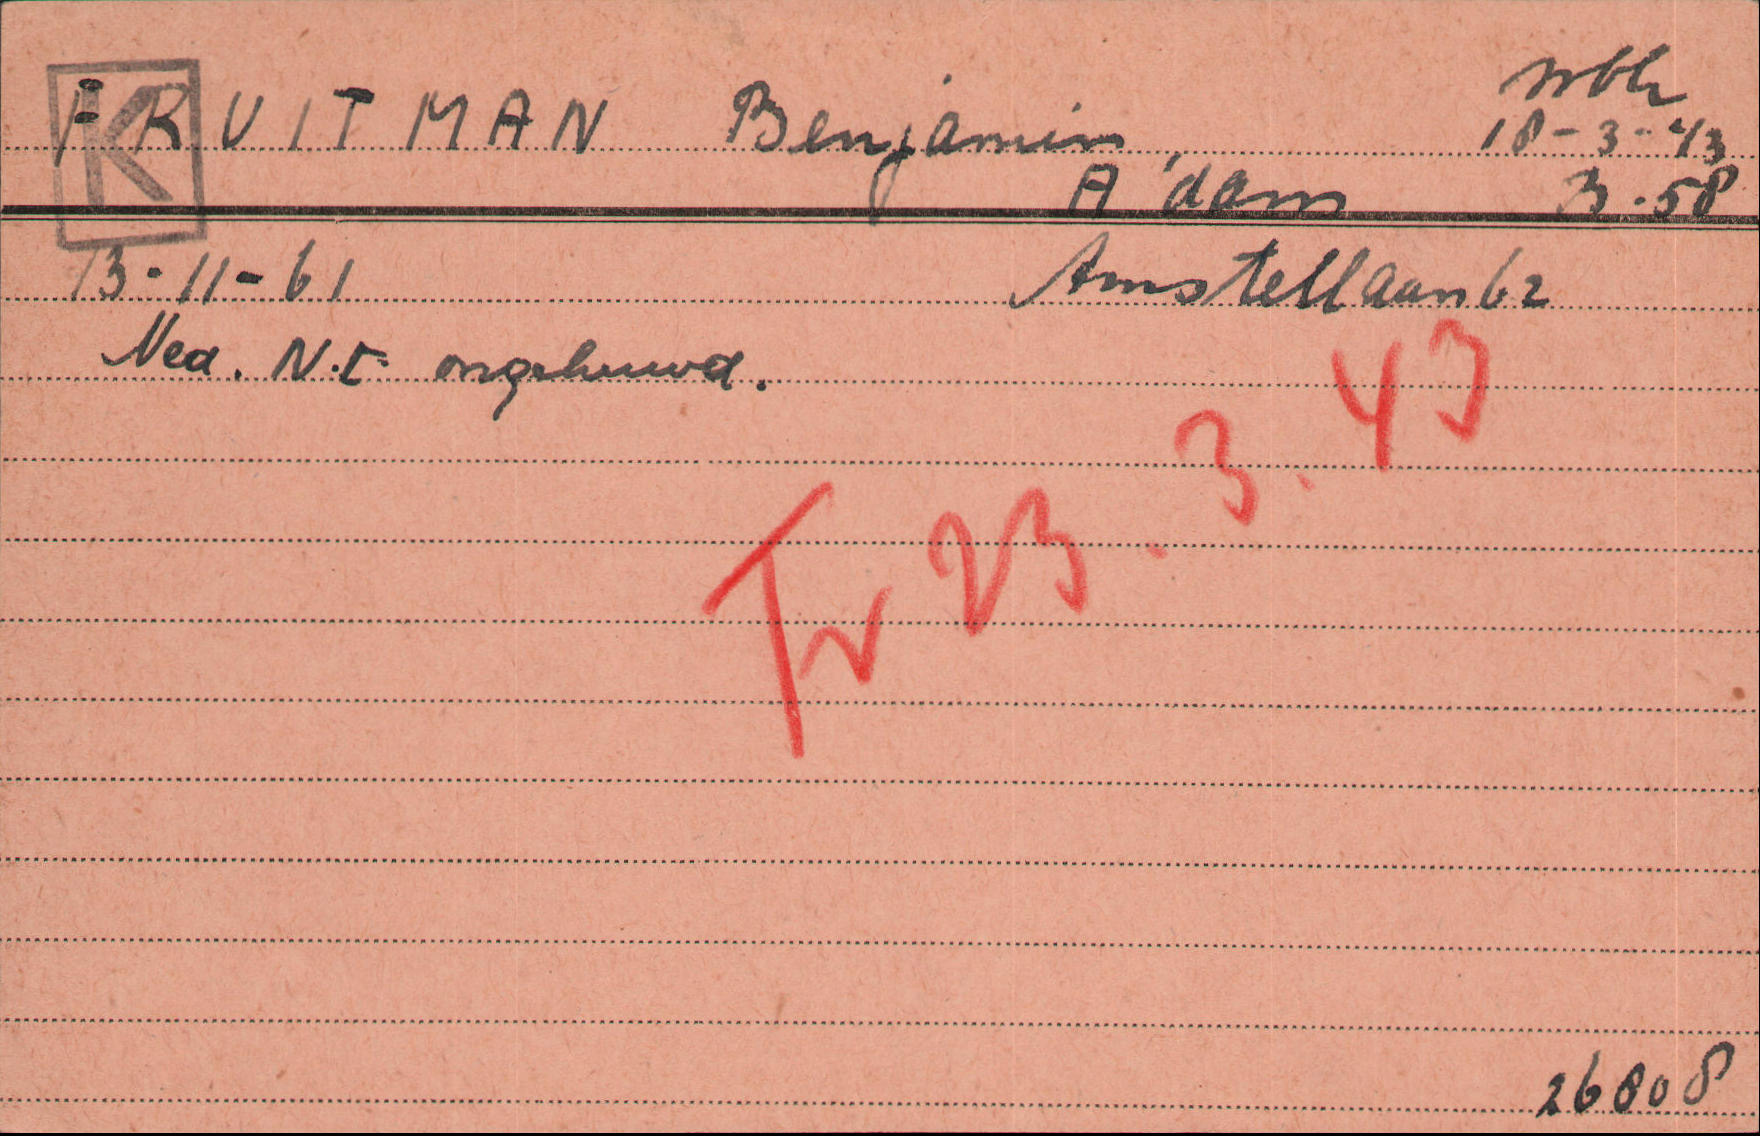 Wbk
K
FRUITMAN Benjamin, 18-3-43
A'dam B.58
13-11-61 Amstellaan 62
Ned. N.I. ongehuwd.
Tr 23.3.43
26808